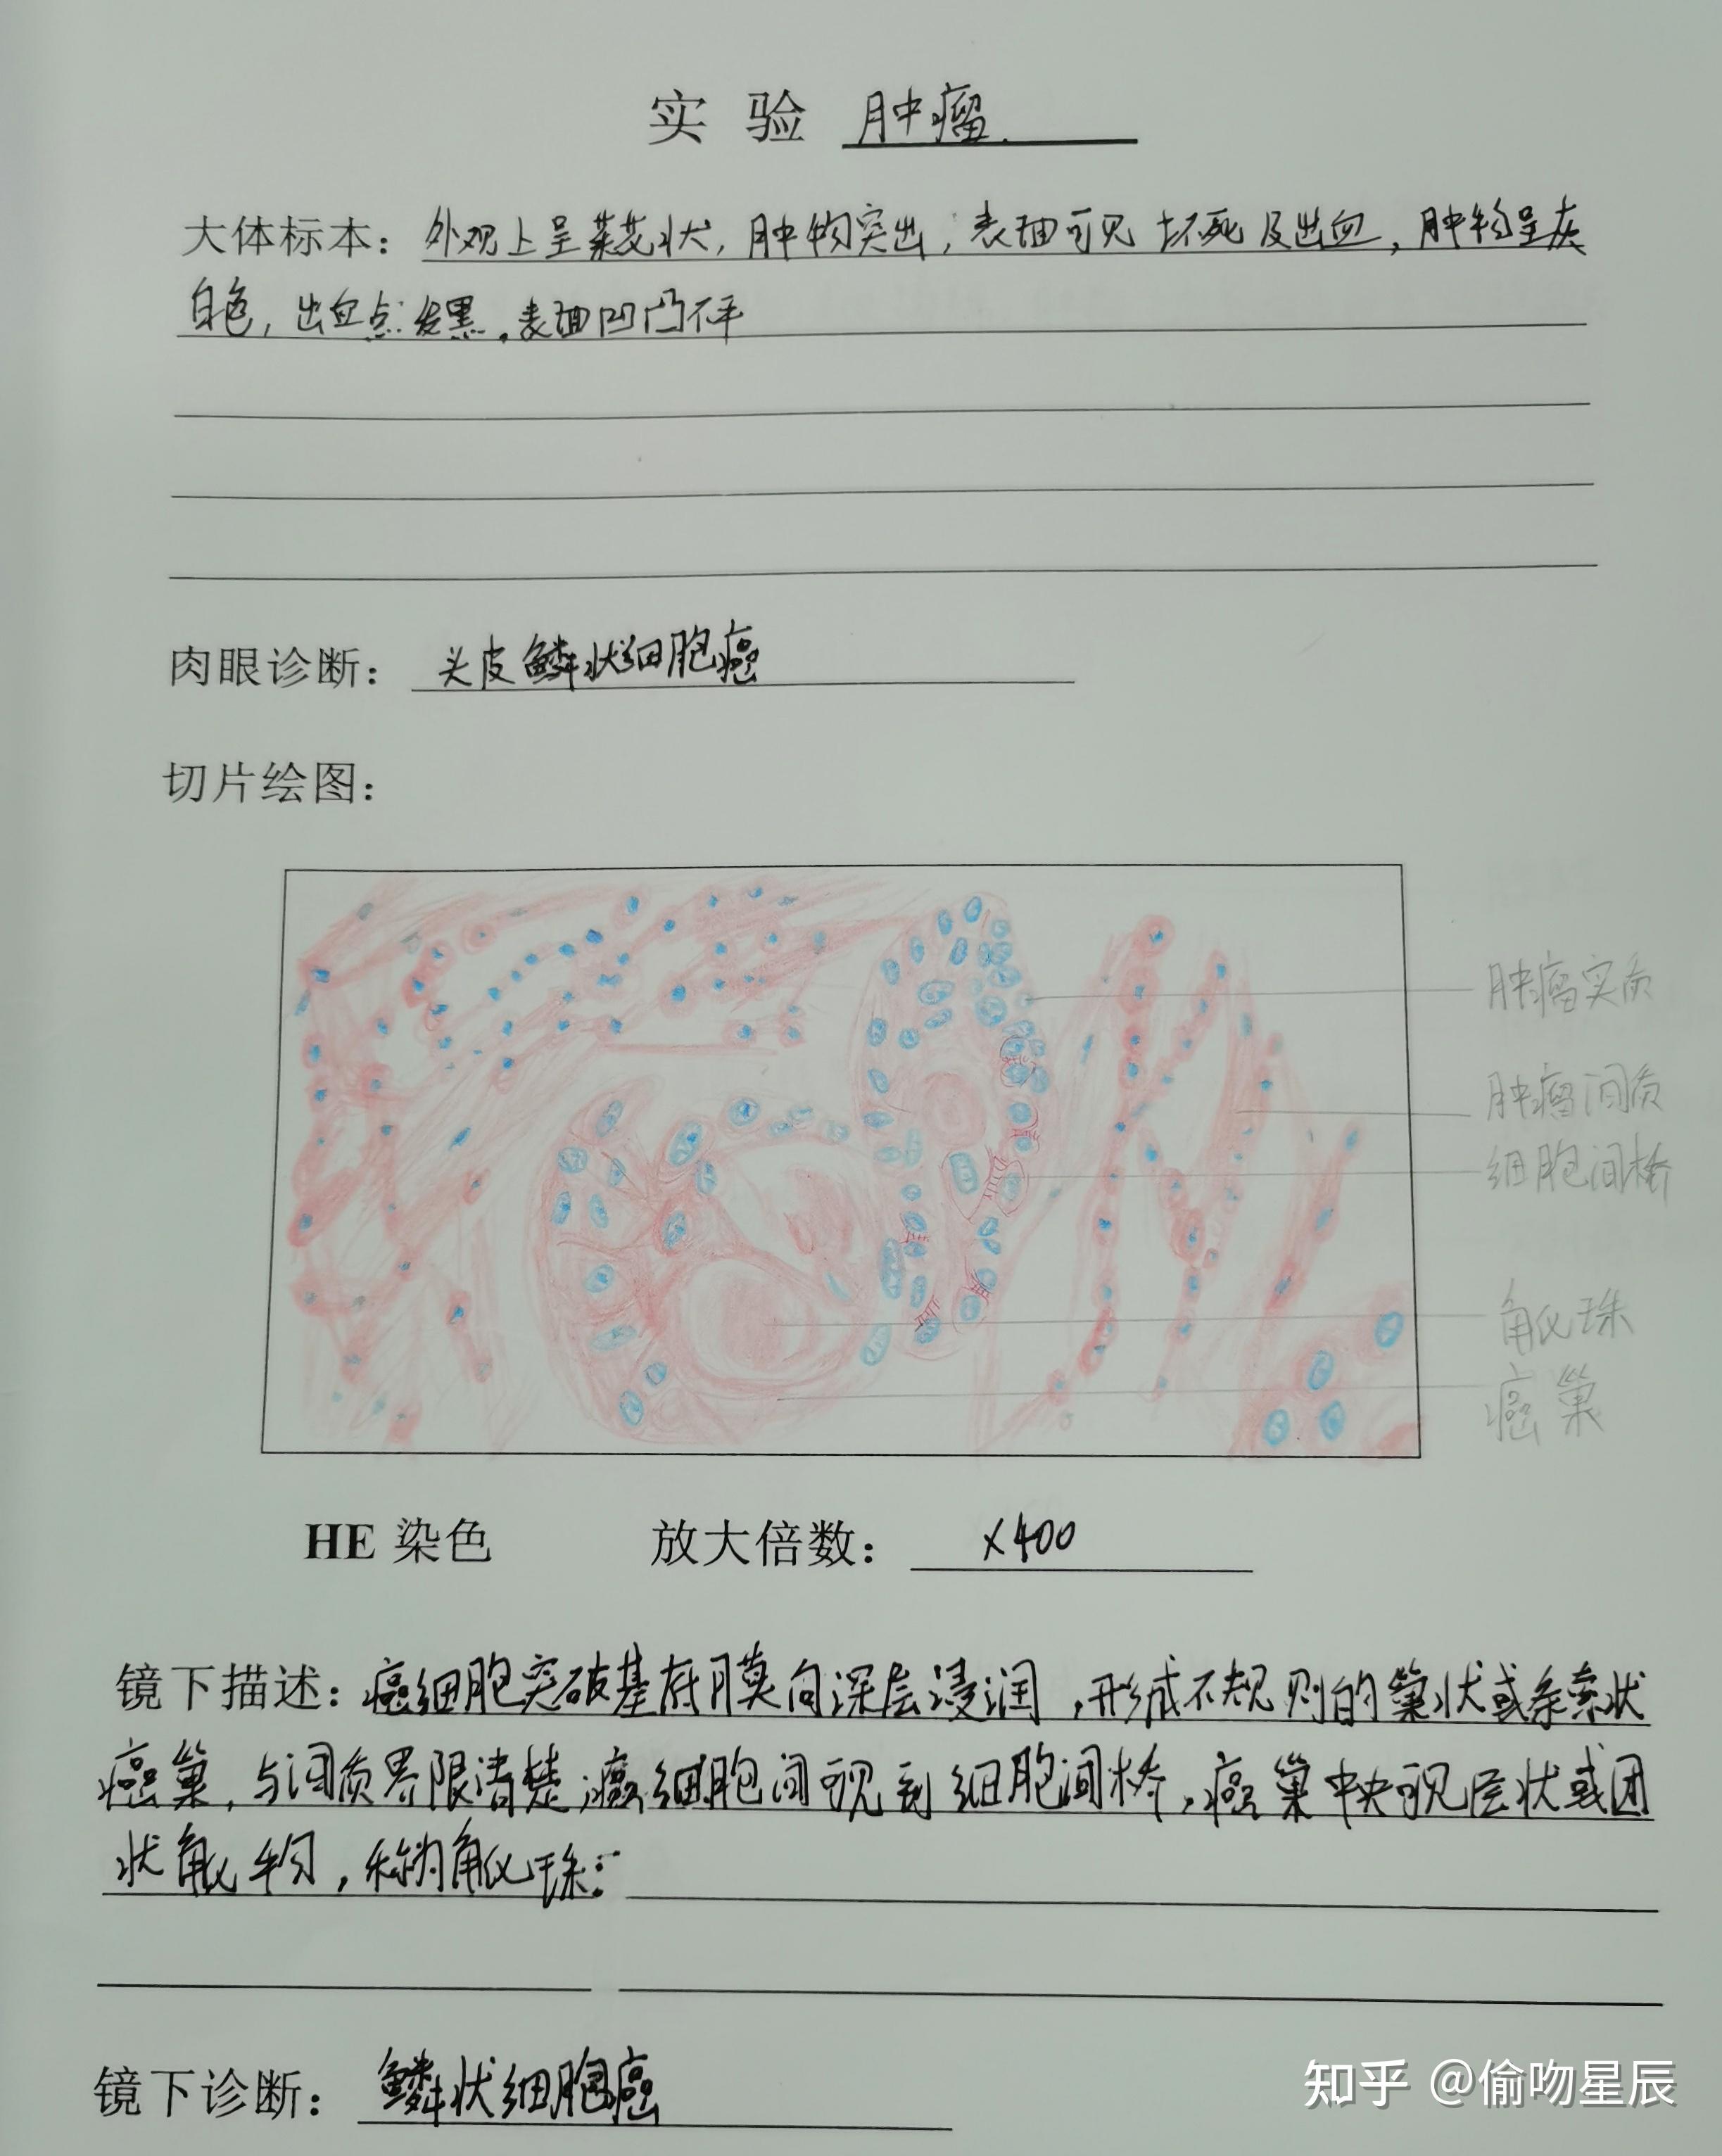 实 验 肿瘤.
大体标本：外观上呈菜花状，肿物突出，表面可见坏死及出血，肿物呈灰
白色，出血点发黑，表面凹凸不平
肉眼诊断：头皮鳞状细胞癌
切片绘图：
肿瘤实质
肿瘤间质
细胞间桥
角化珠
癌巢
HE 染色 放大倍数： ×400
镜下描述：癌细胞突破基底膜向深层浸润，形成不规则的巢状或条索状
癌巢，与间质界限清楚，癌细胞间可见到细胞间桥，癌巢中央可见层状或团
状角化物，称为角化珠.
镜下诊断：鳞状细胞癌
知乎 @偷吻星辰